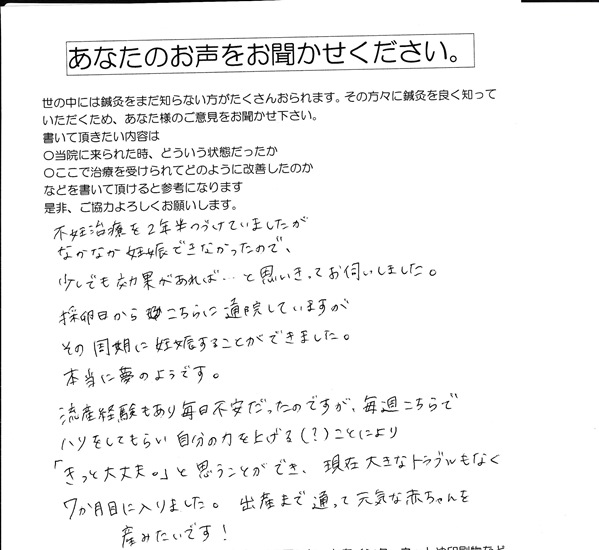 あなたのお声をお聞かせください。
世の中には鍼灸をまだ知らない方がたくさんおられます。その方々に鍼灸を良く知って
いただくため、あなた様のご意見をお聞かせ下さい。
書いて頂きたい内容は
〇当院に来られた時、どういう状態だったか
〇ここで治療を受けられてどのように改善したのか
などを書いて頂けると参考になります
是非、ご協力よろしくお願いします。
不妊治療を2年半つづけていましたが
なかなか妊娠できなかったので、
少しでも効果があれば…と思いきってお伺いしました。
採卵日からこちらに通院していますが
その周期に妊娠することができました。
本当に夢のようです。
流産経験もあり毎日不安だったのですが、毎週こちらで
ハリをしてもらい自分の力を上げる(?)ことにより
「きっと大丈夫。」と思うことができ、現在大きなトラブルもなく
7か月目に入りました。出産まで通って元気な赤ちゃんを
産みたいです!